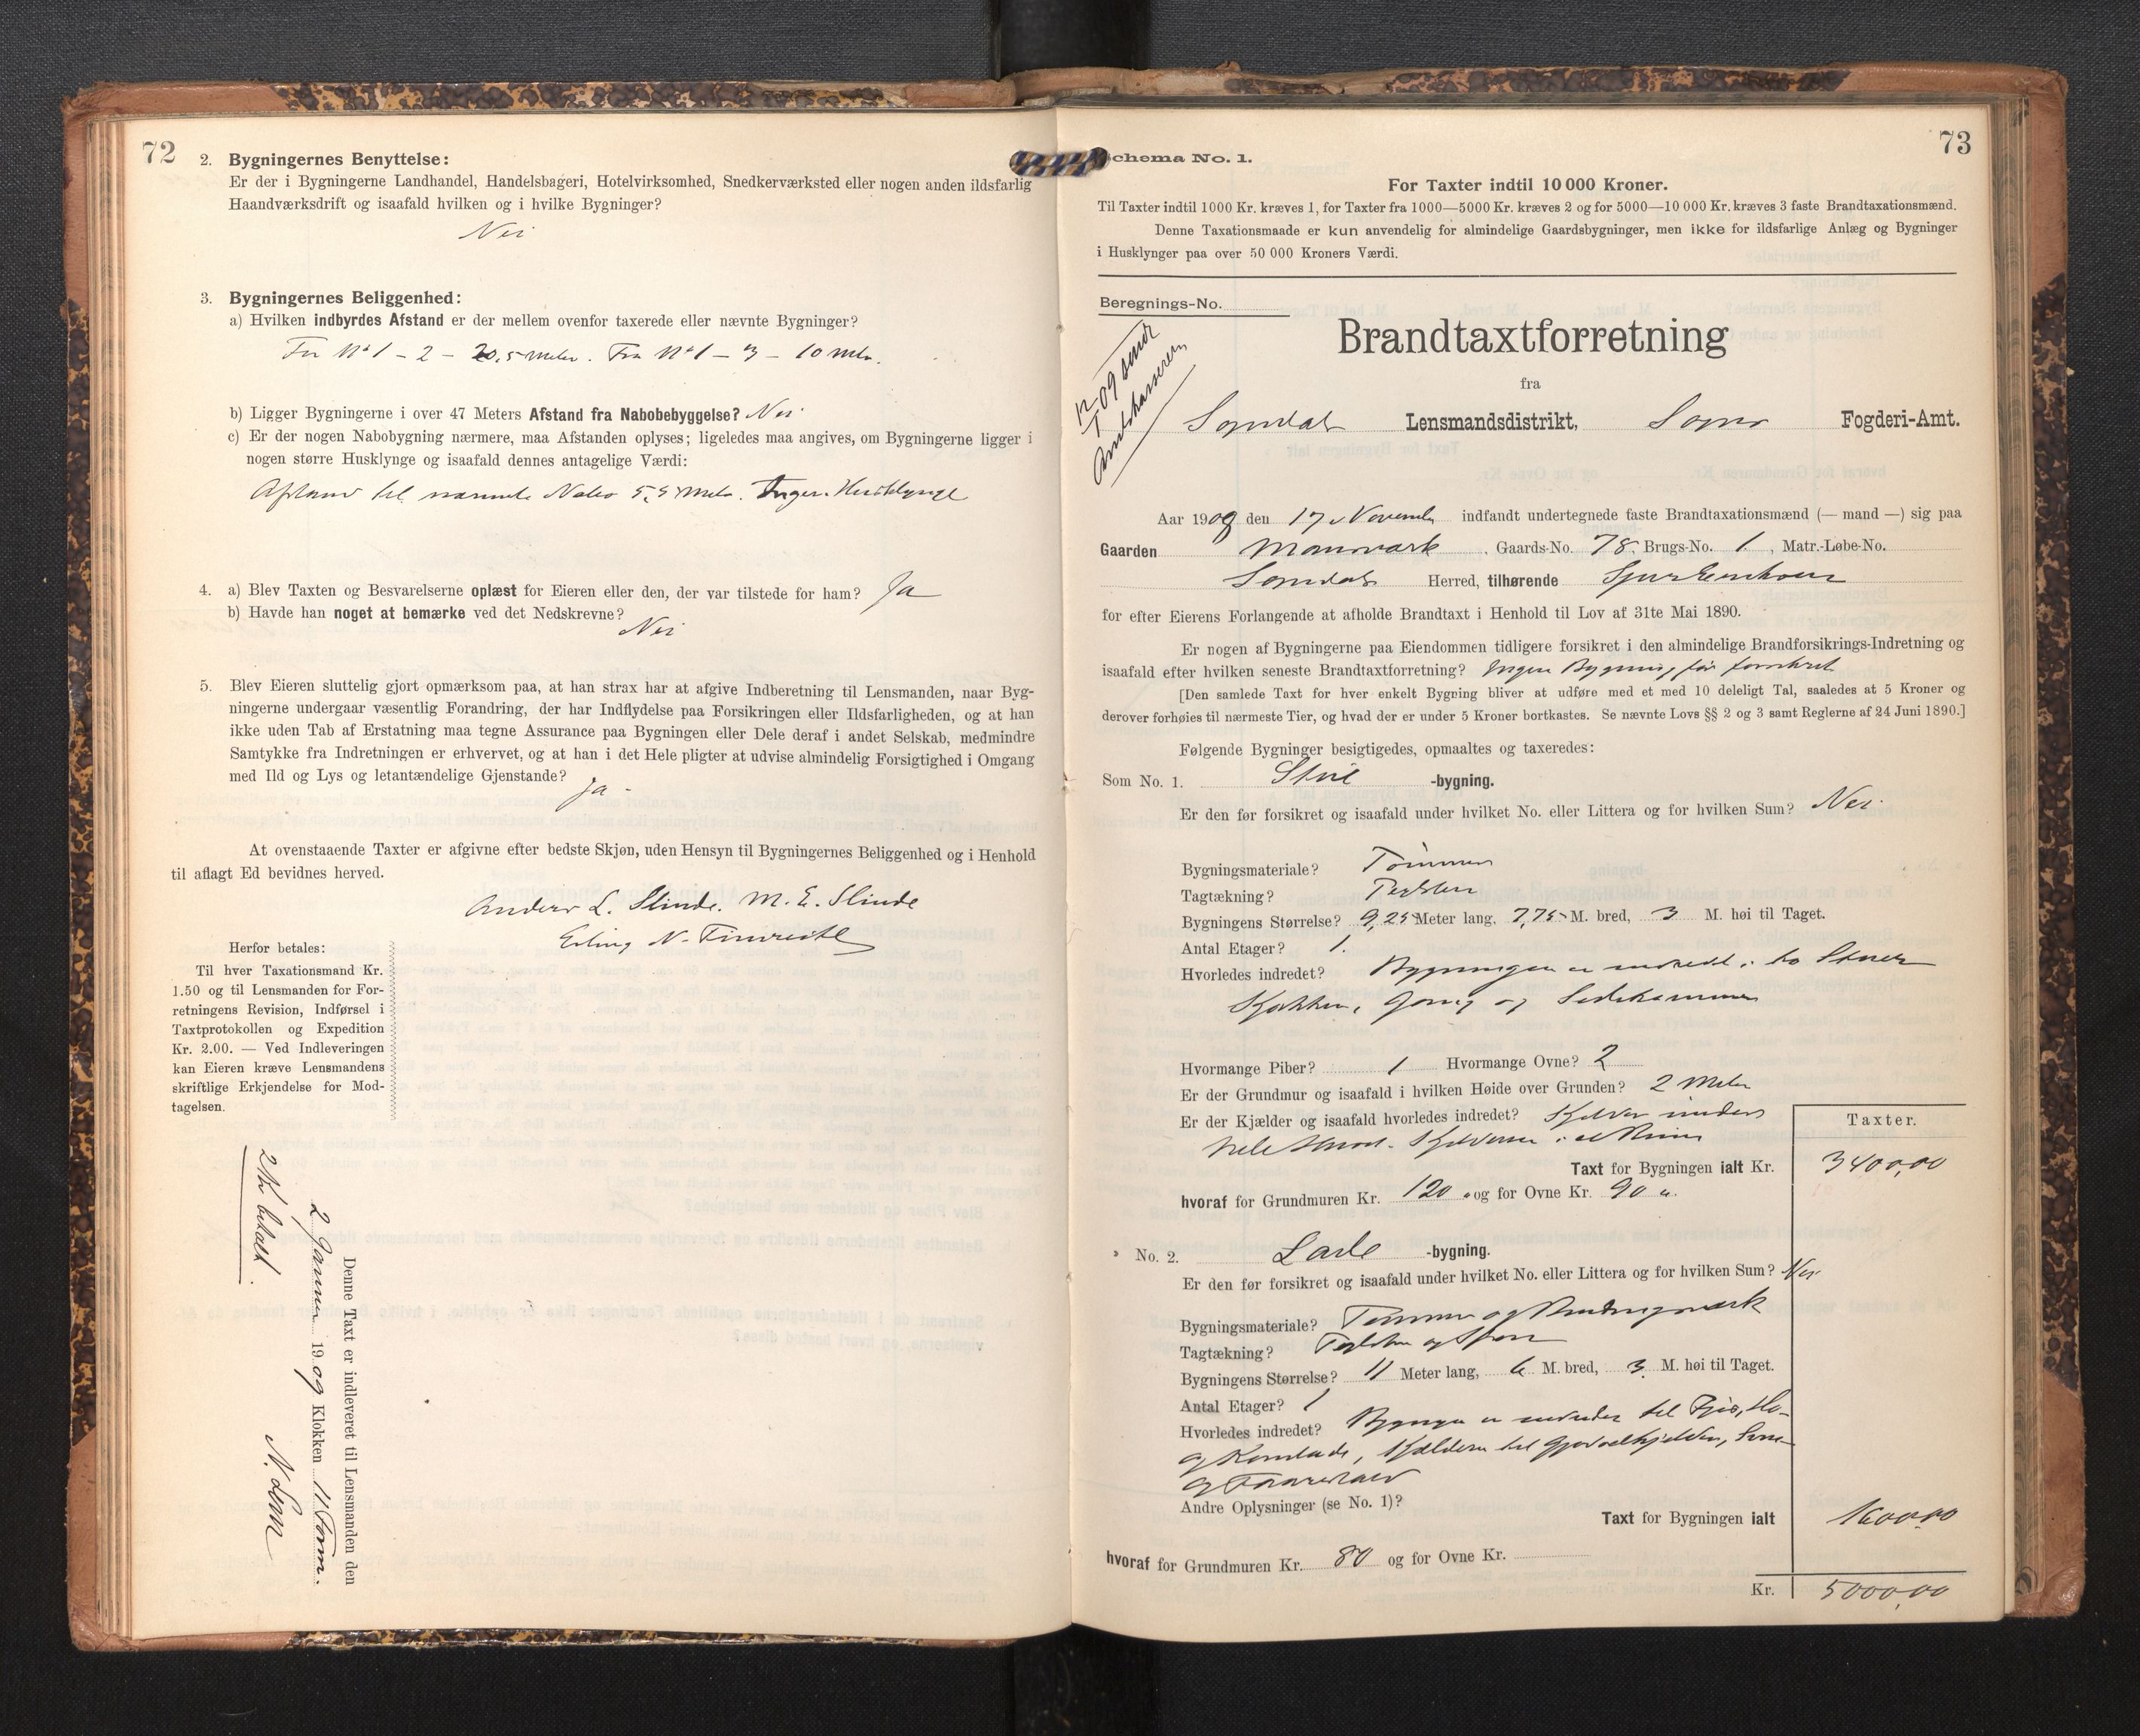 72
2. Bygningernes Benyttelse:
Er der i Bygningerne Landhandel, Handelsbageri, Hotelvirksomhed, Snedkerværksted eller nogen anden ildsfarlig
Haandværksdrift og isaafald hvilken og i hvilke Bygninger?
Nei
3. Bygningernes Beliggenhed:
a) Hvilken indbyrdes Afstand er der mellem ovenfor taxerede eller nævnte Bygninger?
Fra No 1 - 2 - 20,5 Meter. Fra No 1 - 3 - 10 Mtr.
b) Ligger Bygningerne i over 47 Meters Afstand fra Nabobebyggelse? Nei
c) Er der nogen Nabobygning nærmere, maa Afstanden oplyses; ligeledes maa angives, om Bygningerne ligger i
nogen større Husklynge og isaafald dennes antagelige Værdi:
Afstand til nærmeste Nabo 5,5 Meter. Ingen Husklynge
4. a) Blev Taxten og Besvarelserne oplæst for Eieren eller den, der var tilstede for ham? Ja
b) Havde han noget at bemærke ved det Nedskrevne?
Nei
5. Blev Eieren sluttelig gjort opmærksom paa, at han strax har at afgive Indberetning til Lensmanden, naar Byg-
ningerne undergaar væsentlig Forandring, der har Indflydelse paa Forsikringen eller Ildsfarligheden, og at han
ikke uden Tab af Erstatning maa tegne Assurance paa Bygningen eller Dele deraf i andet Selskab, medmindre
Samtykke fra Indretningen er erhvervet, og at han i det Hele pligter at udvise almindelig Forsigtighed i Omgang
med Ild og Lys og letantændelige Gjenstande?
Ja -
At ovenstaaende Taxter er afgivne efter bedste Skjøn, uden Hensyn til Bygningernes Beliggenhed og i Henhold
til aflagt Ed bevidnes herved.
Anders L. Slinde. M. E. Slinde
Erling N.
Herfor betales:
Til hver Taxationsmand Kr.
1.50 og til Lensmanden for For-
retningens Revision, Indførsel i
Taxtprotokollen og Expedition
Kr. 2.00. — Ved Indleveringen
kan Eieren kræve Lensmandens
skriftlige Erkjendelse for Mod-
tagelsen.
Denne Taxt er indleveret til Lensmanden den
2 Januar 1909 Klokken 11 Form.
N. Lem
2 Kr betalt.
73
Schema No. 1.
For Taxter indtil 10 000 Kroner.
Til Taxter indtil 1000 Kr. kræves 1, for Taxter fra 1000—5000 Kr. kræves 2 og for 5000—10 000 Kr. kræves 3 faste Brandtaxationsmænd.
Denne Taxationsmaade er kun anvendelig for almindelige Gaardsbygninger, men ikke for ildsfarlige Anlæg og Bygninger
i Husklynger paa over 50 000 Kroners Værdi.
Beregnings-No.
12/1 09 sendt
Amtskasseren
Brandtaxtforretning
fra
Sogndal Lensmandsdistrikt, Sogns Fogderi-Amt.
Aar 1908 den 17 November indfandt undertegnede faste Brandtaxationsmænd (— mand —) sig paa
Gaarden Gaards-No. 78, Brugs-No. 1, Matr.-Løbe-No.
Sogndal Herred, tilhørende
for efter Eierens Forlangende at afholde Brandtaxt i Henhold til Lov af 31te Mai 1890.
Er nogen af Bygningerne paa Eiendommen tidligere forsikret i den almindelige Brandforsikrings-Indretning og
isaafald efter hvilken seneste Brandtaxtforretning? Ingen Bygning før forsikret
[Den samlede Taxt for hver enkelt Bygning bliver at udføre med et med 10 deleligt Tal, saaledes at 5 Kroner og
derover forhøies til nærmeste Tier, og hvad der er under 5 Kroner bortkastes. Se nævnte Lovs §§ 2 og 3 samt Reglerne af 24 Juni 1890.]
Følgende Bygninger besigtigedes, opmaaltes og taxeredes:
Som No. 1. -bygning.
Er den før forsikret og isaafald under hvilket No. eller Littera og for hvilken Sum? Nei
Bygningsmateriale? Tømmer
Tagtækning? Teglsten
Bygningens Størrelse? 9,25 Meter lang, 7,75 M. bred, 3 M. høi til Taget.
Antal Etager? 1.
Hvorledes indredet? Bygningen er indredet i to Stuer
Kjøkken, Gang og Sidekammer
Hvormange Piber? 1 Hvormange Ovne? 2
Er der Grundmur og isaafald i hvilken Høide over Grunden? 2 Meter
Er der Kjælder og isaafald hvorledes indredet? Kjelder under
hele Huset. Kjelderen i et Rum
Taxter.
Taxt for Bygningen ialt Kr. 3400,00
hvoraf for Grundmuren Kr. 120 " og for Ovne Kr. 90 "
" No. 2. Lade -bygning.
Er den før forsikret og isaafald under hvilket No. eller Littera og for hvilken Sum? Nei
Bygningsmateriale? Tømmer og Bindingsværk
Tagtækning? Teglsten og Spon
Bygningens Størrelse? 11 Meter lang, 6 M. bred, 3 M. høi til Taget.
Antal Etager? 1
Hvorledes indredet? Bygningen er indredet til Fjøs, Hø-
og Kornlade, Kjælderen til Gjødselkjelder,
og
Andre Oplysninger (se No. 1)?
Taxt for Bygningen ialt 1600,00
hvoraf for Grundmuren Kr. 80 og for Ovne Kr.
Kr. 5000,00